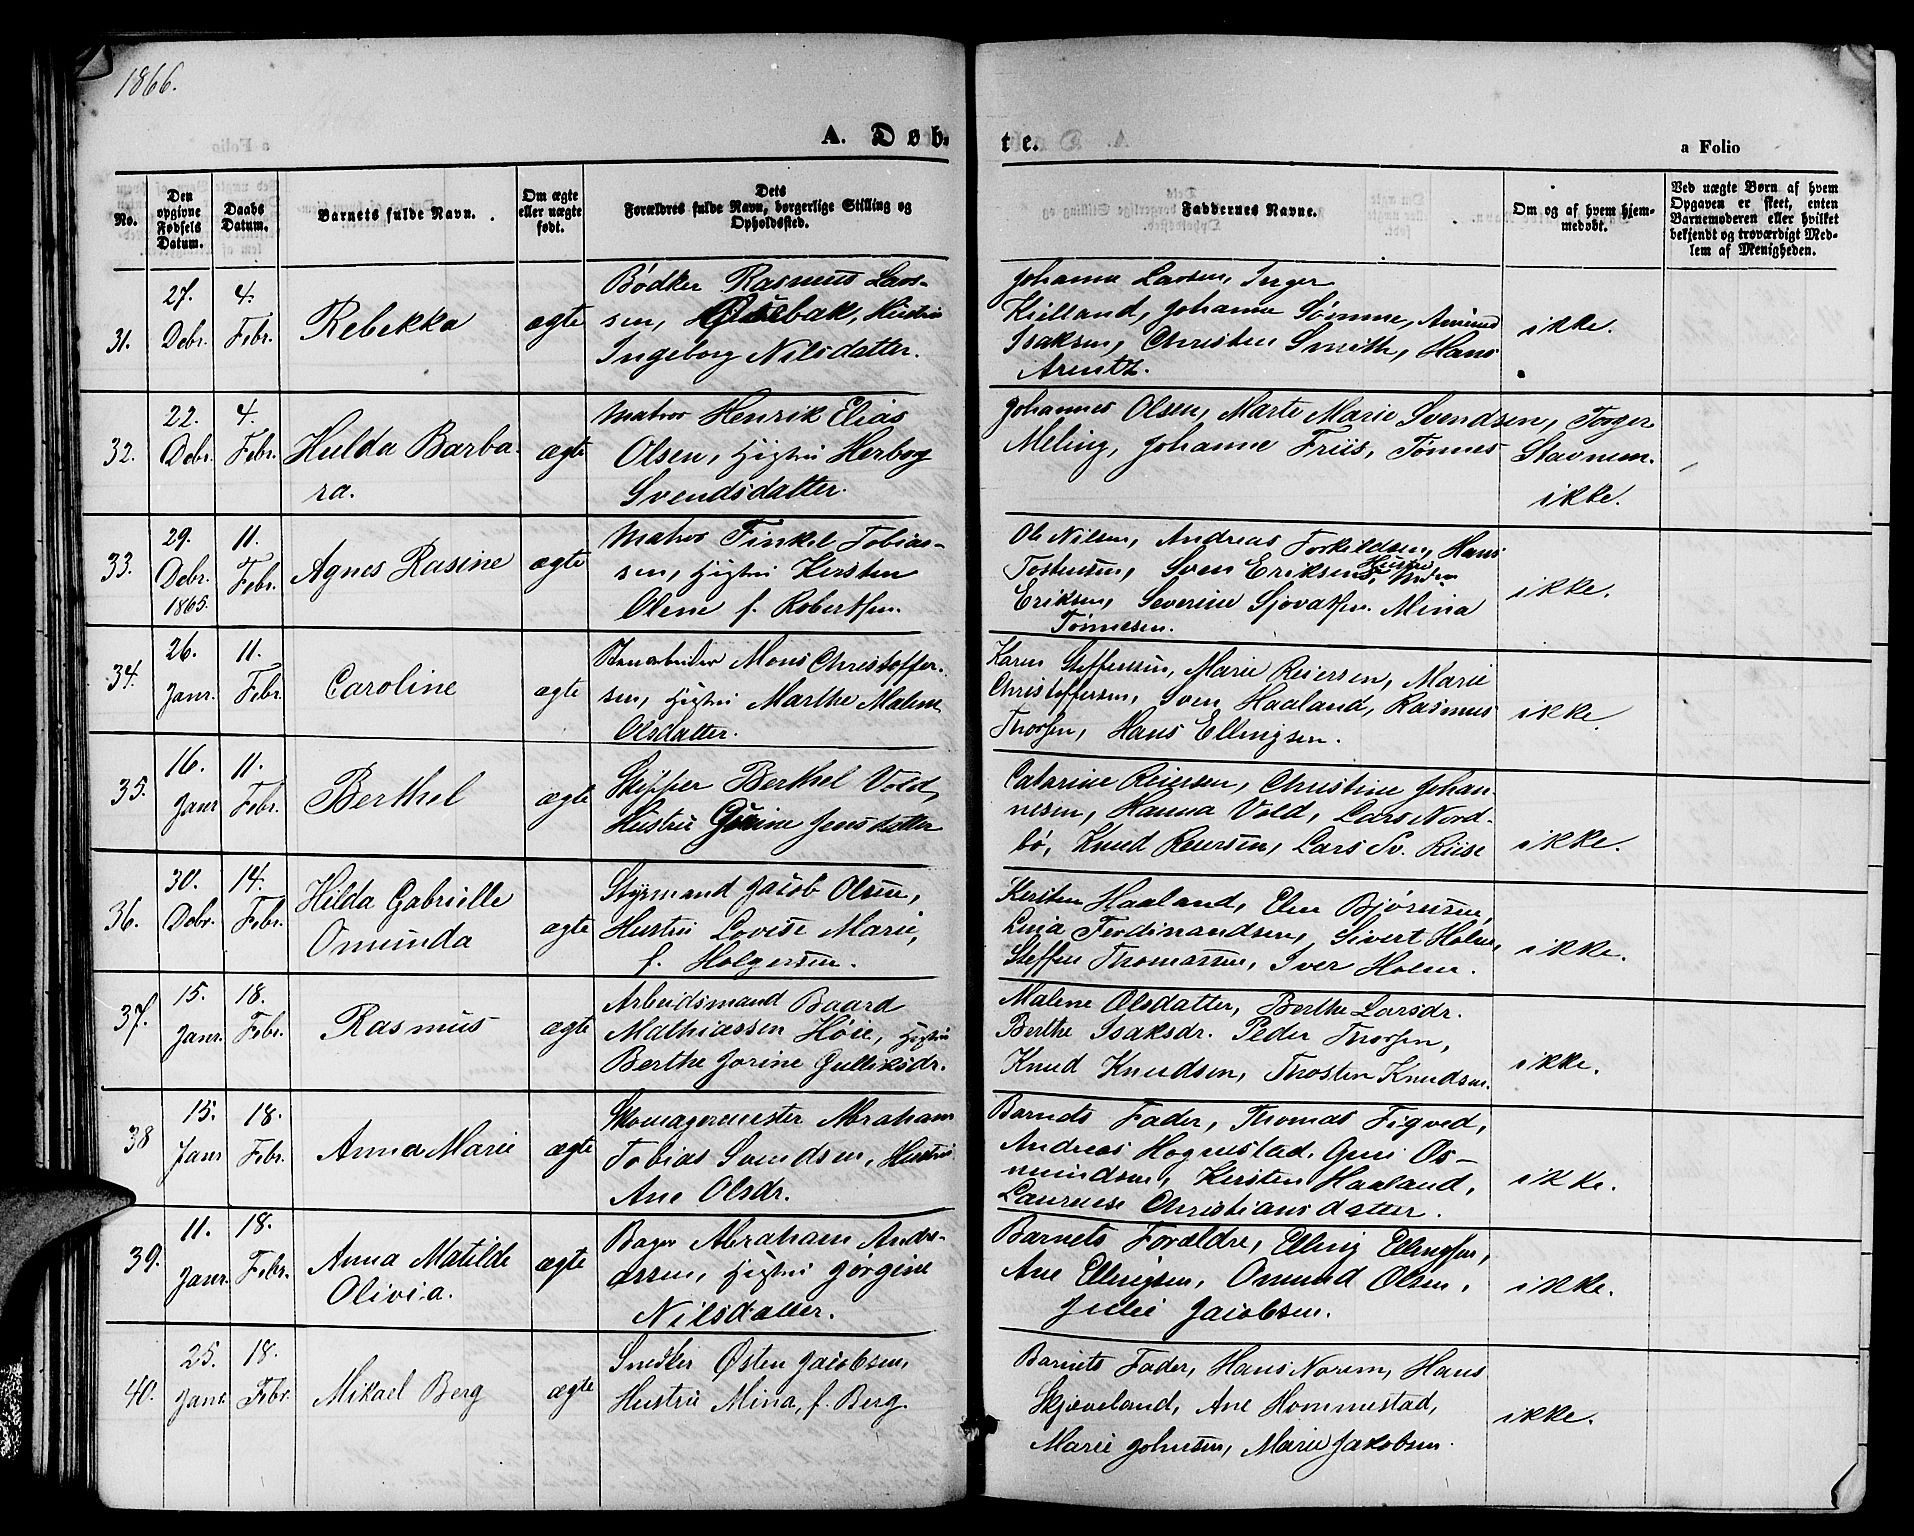 1866.
A. Døb-
te.
a Folio
No.
Den opgivne Fødsels Datum.
Daabs Datum.
Barnets fulde Navn.
Om ægte eller uægte født.
Dets Forældres fulde Navn, borgerlige Stilling og Opholdssted.
Faddernes Navne.
Om og af hvem hjemmedøbt.
Ved uægte Børn af hvem Opgaven er skeet, enten Barnemoderen eller hvilket bekjendt og troværdigt Medlem af Menigheden.
31.
27. Debr.
4. Febr.
Rebekka
ægte
Bødker Rasmus Lars-
sen, Hustru
Ingeborg Nilsdatter.
Johanna Larsen, Inger
Kielland, Johanna Sømme, Amund
Isaksen, Christen Smith, Hans
Arentz.
ikke.
32.
22. Debr.
4. Febr.
Hulda Barba-
ra.
ægte
Matros Henrik Elias
Olsen, Hustru Herborg
Svendsdatter.
Johannes Olsen, Marte Marie Svendsen, Torger
Meling, Johanne Friis, Tønnes Stavnem.
ikke.
33.
29. Debr. 1865.
11. Febr.
Agnes Rasine
ægte
Matros Finkel Tobias-
sen, Hustru Kersten
Olene f. Robertsen.
Ole Nilsen, Andreas Torkildsen, Hans
Tostensen, Sven Eriksens Hustru,
Eriksen, Severine Sjovatsen. Mina
Tønnesen.
ikke.
34.
26. Janr.
11. Febr.
Caroline
ægte
Stenarbeider Mons Christoffer-
sen, Hustru Marthe Malene
Olsdatter.
Karen Steffensen, Marie Reiersen, Marie
Christoffersen, Sven Haaland, Rasmus
Thorsen, Hans Ellingsen.
ikke.
35.
16. Janr
11. Febr.
Berthel
ægte
Skipper Berthel Vold,
Hustru Gurine Jensdatter
Catarine Reiersen, Christine Johan-
nesen, Hanna Vold, Lars Nord-
bø, Knud Reiersen, Lars Sv. Riise
ikke.
36.
30. Debr.
14. Febr.
Hilda Gabrielle
Omunda
ægte
Styrmand Jacob Olsen,
Hustru Lovise Marie,
f. Holgersen.
Kersten Haaland, Elen Bjørnsen,
Lina Ferdinandsen, Sivert Holm,
Steffen Thomassen, Iver Holm.
ikke.
37.
15. Janr.
18. Febr.
Rasmus
ægte
Arbeidsmand Baard
Mathiassen Høie, Hustru
Berthe Jorine Gulliksdr.
Malene Olsdatter, Berthe Larsdr.
Berthe Isaksdr. Peder Thorsen,
Knud Knudsen, Thosten Knudsen.
ikke.
38
15. Janr
18. Febr.
Anna Marie
ægte
Skomagermester Abraham
Tobias Svendsen, Hustru
Ane Olsdr.
Barnets Fader, Thomas Tigved,
Andreas Hognestad, Guri Os-
mundsen, Kersten Haaland,
Laurense Christiansdatter.
ikke.
39.
11. Janr.
18. Febr.
Anna Matilde
Olivia.
ægte
Bager Abraham Andre-
assen, Hustru Jørgine
Nilsdatter.
Barnets Forældre, Elling Ellingsen,
Ane Ellingsen, Omund Olsen,
Julie Jacobsen.
ikke.
40.
25. Janr.
18. Febr.
Mikael Berg
ægte
Snedker Østen Jacobsen,
Hustru Mina, f. Berg.
Barnets Fader, Hans Norem, Hans
Skjæveland, Ane Hommestad,
Marie Johnsen, Marie Jakobsen.
ikke.